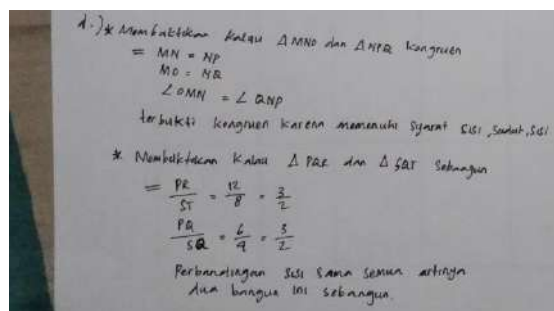 d.) * Membuktikan kalau Δ MNO dan Δ NPQ kongruen
= MN = NP
MO = NQ
∠ OMN = ∠ QNP
terbukti kongruen karena memenuhi syarat sisi, sudut, sisi
* Membuktikan kalau Δ PQR dan Δ SQT sebangun
= PR/ST = 12/8 = 3/2
PQ/SQ = 6/4 = 3/2
Perbandingan sisi sama semua artinya
dua bangun ini sebangun.